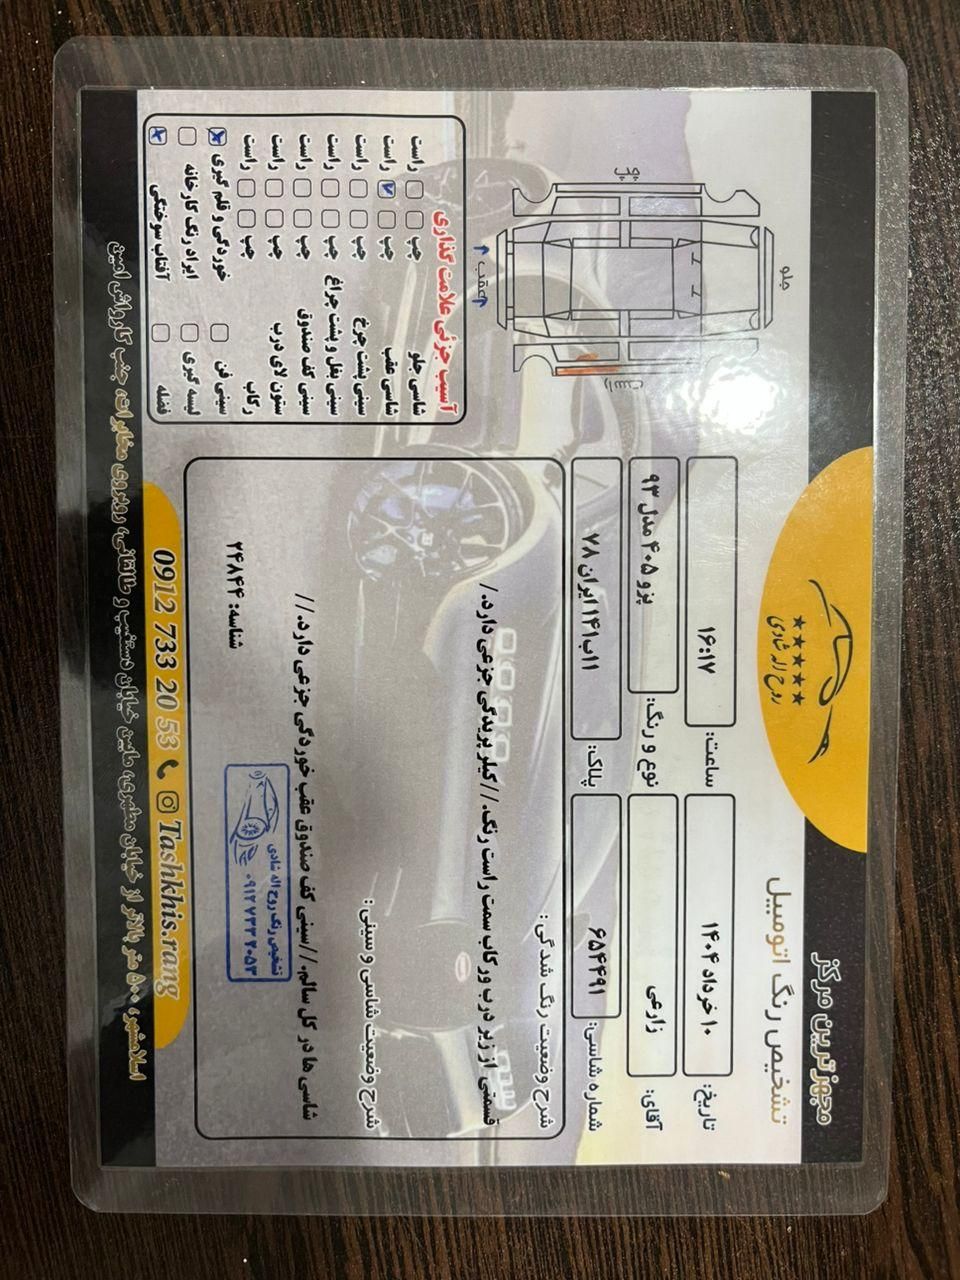 مجهزترین مرکز
تشخیص رنگ اتومبیل
روح اله شادی
تاریخ: ۱۰ خرداد ۱۴۰۴
ساعت: ۱۶:۱۷
آقای: زارعی
نوع و رنگ: پژو ۴۰۵ مدل ۹۳
شماره شاسی: ۶۵۴۴۹۱
پلاک: ۱۱ب۱۴۱ ایران ۷۸
شرح وضعیت رنگ شدگی:
قسمتی از زیر درب و رکاب سمت راست رنگ.//گیلر پریدگی جزعی دارد./
شرح وضعیت شاسی و سینی:
شاسی ها در کل سالم.//سینی کف صندوق عقب خوردگی جزعی دارد.//
شناسه: ۲۴۸۴۴
تشخیص رنگ روح اله شادی
۰۹۱۲۷۳۳۲۰۵۳
جلو
چپ
راست
عقب
آسیب جزئی علامت گذاری
شاسی جلو چپ راست
شاسی عقب چپ راست
سینی پشت چرخ چپ راست
سینی بغل و پشت چراغ چپ راست
سینی کف صندوق چپ راست
ستون لای درب چپ راست
رکاب چپ راست
سینی فن خوردگی و قلم گیری
لیسه گیری ایراد رنگ کارخانه
فضله آفتاب سوختگی
0912 733 20 53 Tashkhis.rang
اسلامشهر، ۵۰۰ متر بالاتر از خیابان مطهری، مابین خیابان دستغیب و طالقانی، روبروی مخابرات، جنب کارواش امین